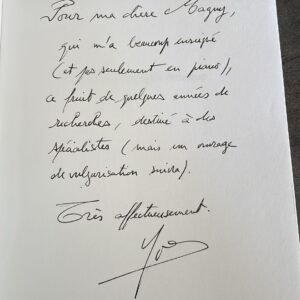 Pour ma chère Maguy,
qui m'a beaucoup enseigné
(et pas seulement en piano),
ce fruit de quelques années de
recherches, destiné à des
spécialistes (mais un ouvrage
de vulgarisation suivra).
Très affectueusement.